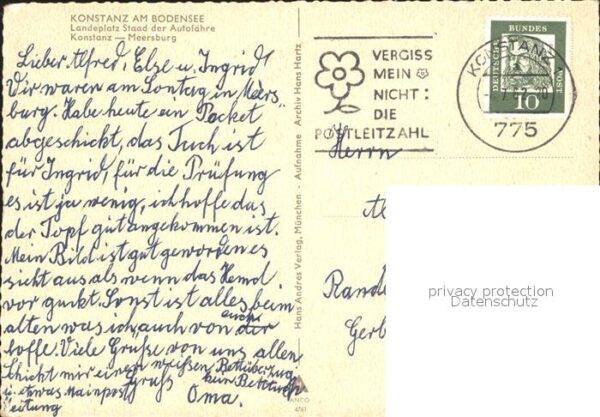 KONSTANZ AM BODENSEE
Landeplatz Staad der Autofähre
Konstanz — Meersburg
Lieber Alfred, Else u. Ingrid!
Wir waren am Sontag in Meers
burg. Habe heute ein Packet
abgeschickt, das Tuch ist
für Ingrid, für die Prüfung
es ist ja wenig, ich hoffe das
der Topf gut angekommen ist.
Mein Bild ist gut geworden es
sieht aus als wenn das Hemd
vor guckt. Sonst ist alles beim
alten was ich auch von euch
hoffe. Viele Grüße von uns allen
Schickt mir einen weißen Bettüberzug
kein Betttuch
u. etwas Mainpost Gruß
zeitung Oma.
Hans Andres Verlag, München - Aufnahme Archiv Hans Hartz
ANDO
4761
VERGISS
MEIN
NICHT:
DIE
POSTLEITZAHL
KONSTANZ
775
DEUTSCHE BUNDESPOST
10
Herrn
Al
Rande
Gerb
privacy protection
Datenschutz